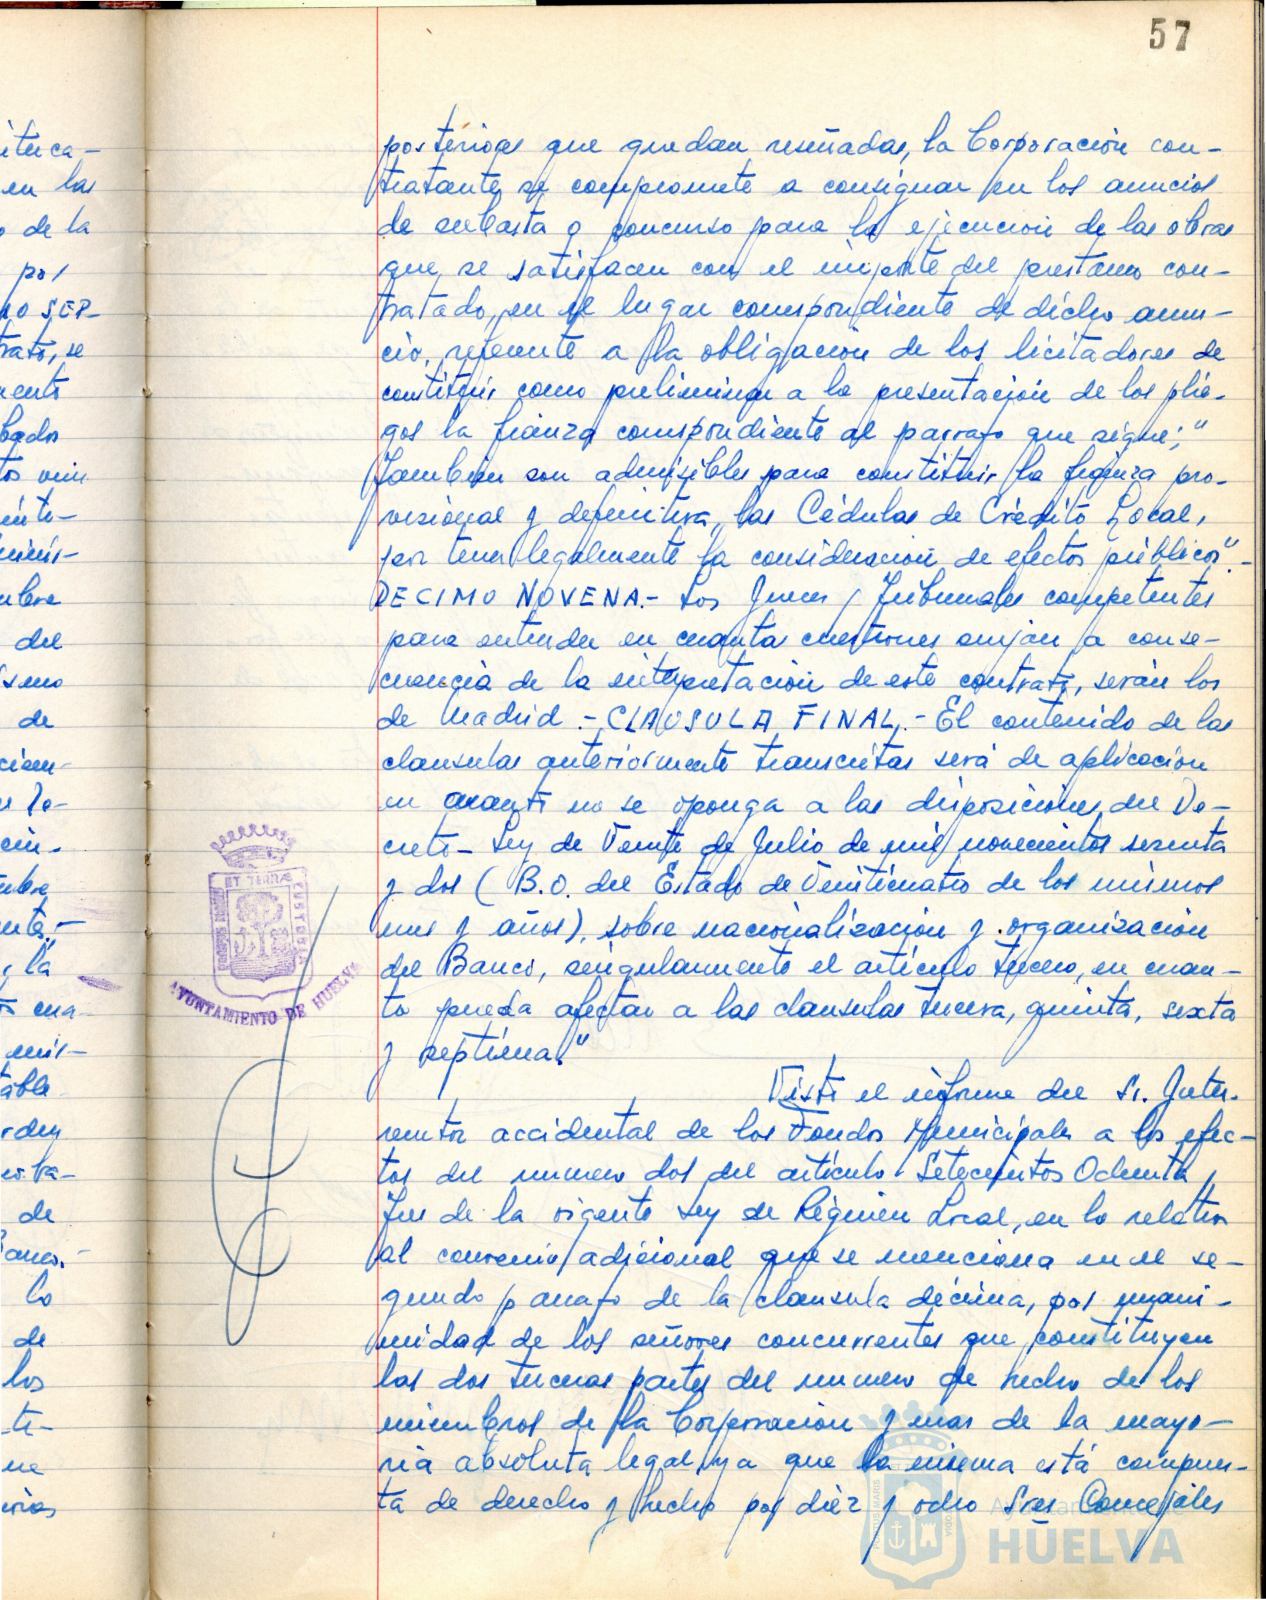 57
posterioes que quedan reseñadas, la Corporación con-
tratante se compromete a consignar en los anuncios
de subasta o concurso para la ejecución de las obras
que se satisfacen con el importe del prestamo con-
tratado, en el lugar correspondiente de dicho anun-
cio, referente a la obligación de los licitadores de
constituir como preliminar a la presentación de los plie-
gos la fianza correspondiente al parrafo que sigue; "
Tambien son admisibles para constituir la fianza pro-
visional y definitiva, las Cédulas de Crédito Local,
por tener legalmente la consideración de efectos públicos".-
DECIMO NOVENA.- Los Jueces y Tribunales competentes
para entender en cuantas cuestiones surjan a conse-
cuencia de la interpretación de este contrato, serán los
de Madrid.- CLAUSULA FINAL.- El contenido de las
clausulas anteriormente transcritas será de aplicación
en cuanto no se oponga a las disposiciones del De-
creto-Ley de Veinte de Julio de mil novecientos sesenta
y dos (B.O. del Estado de Veinticuatro de los mismos
mes y años), sobre nacionalización y organización
del Banco, singularmente el artículo tercero, en cuan-
to pueda afectar a las clausulas tercera, quinta, sexta
y septima."
Visto el informe del Sr. Inter-
ventor accidental de los Fondos Municipales a los efec-
tos del numero dos del artículo Setecientos Ochenta
Tres de la vigente Ley de Régimen Local, en lo relativo
al convenio adicional que se menciona en el se-
gundo parrafo de la clausula décima, por unani-
midad de los señores concurrentes que constituyen
las dos terceras partes del numero de hecho de los
miembros de la Corporación y mas de la mayo-
ria absoluta legal, ya que la misma está compues-
ta de derecho y hecho por diez y ocho Sres Concejales
AYUNTAMIENTO DE HUELVA
Ayuntamiento de
HUELVA